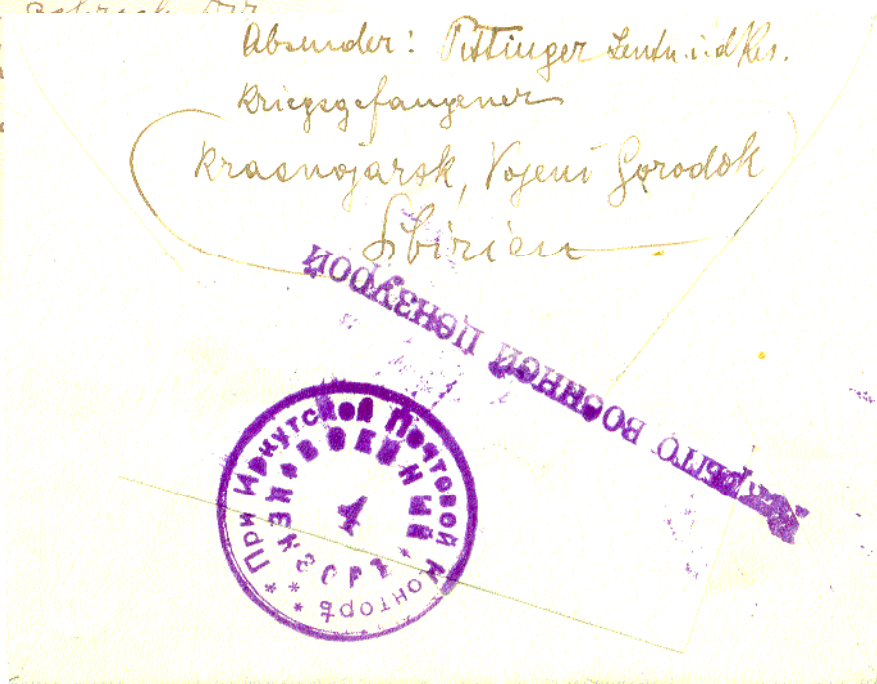 Absender: Pittinger Leutn. i. d. Res.
Kriegsgefangener
Krasnojarsk, Vojeni Gorodok
Sibirien
военной цензурой
* При Иркутской Почтовой Конторѣ *
ВОЕННЫЙ
1